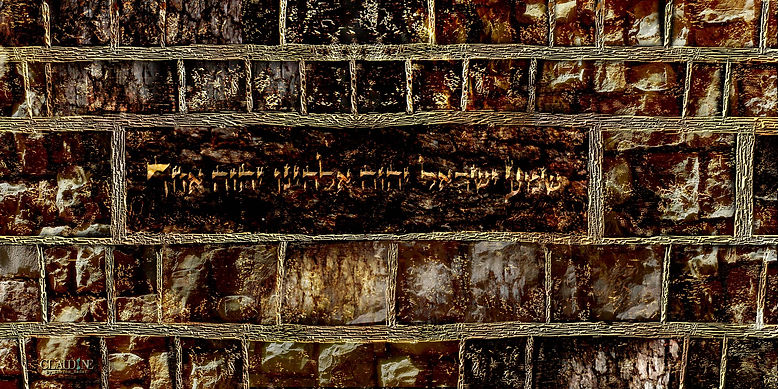 שמע ישראל יהוה אלהינו יהוה אחד
CLAUDINE